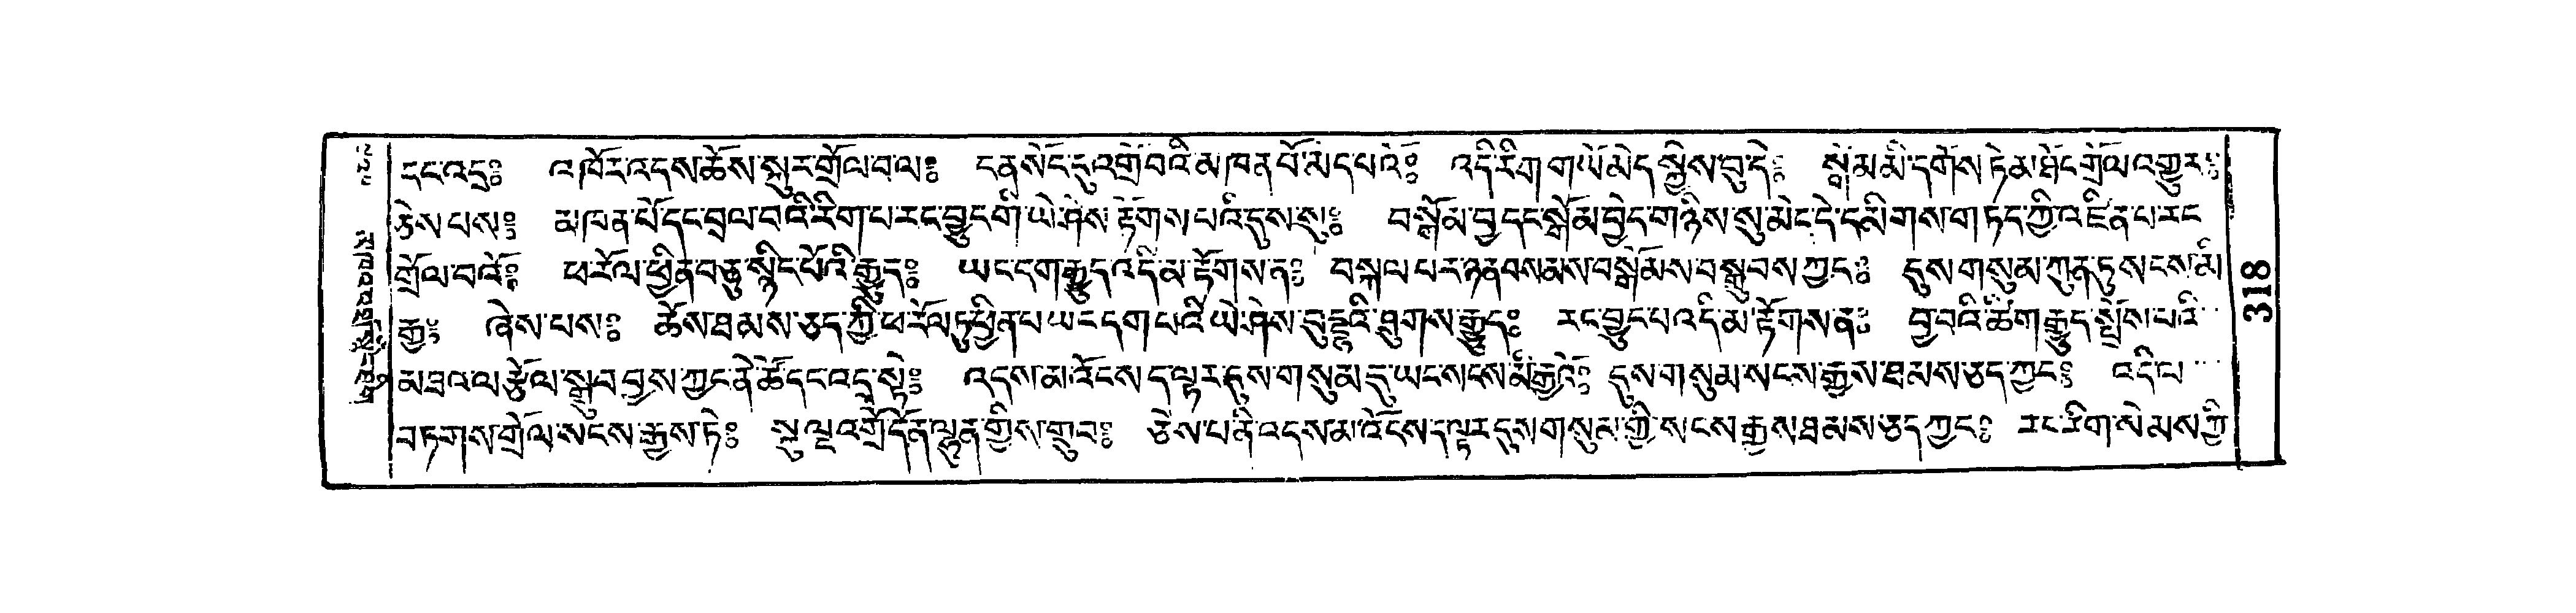 དང་འདྲ༔ འཁོར་འདས་ཆོས་སྐུར་གྲོལ་བལ༔ ངན་སོང་དུ་འགྲོ་བའི་མཁན་པོ་མེད་པའོ༔ འདི་རིག་གཡོ་མེད་སྐྱེས་བུ་དེ༔ སྒོམ་མི་དགོས་ཏེ་མ་ཐོང་གྲོལ་འགྱུར༔
ཅེས་པས༔ མཁན་པོ་དང་བྲལ་བའི་རིག་པ་རང་བྱུང་གི་ཡེ་ཤེས་རྟོགས་པའི་དུས་སུ༔ བསྒོམ་བྱ་དང་སྒོམ་བྱེད་གཉིས་སུ་མེད་དེ་དམིགས་གཏད་ཀྱི་འཛིན་པ་རང
གྲོལ་བའོ༔ ཕ་རོལ་ཕྱིན་བཅུ་སྙིང་པོའི་རྒྱུད༔ ཡང་དག་རྒྱུད་འདི་མ་རྟོགས་ན༔ བསྐལ་པར་ཉན་བསམས་བསྒོམས་བསྒྲུབས་ཀྱང༔ དུས་གསུམ་ཀུན་ཏུ་སངས་མི
རྒྱ༔ ཞེས་པས༔ ཆོས་ཐམས་ཅད་ཀྱི་ཕ་རོལ་ཏུ་ཕྱིན་པ་ཡང་དག་པའི་ཡེ་ཤེས་བུདྡྷའི་ཐུགས་རྒྱུད༔ རང་བྱུང་པ་འདི་མ་རྟོགས་ན༔ བྱ་བའི་ཚིག་རྒྱུད་སྤྲོས་པའི
མཐའ་ལ་རྩོལ་སྒྲུབ་བྱས་ཀྱང་ནེ་ཚོ་དང་འདྲ་སྟེ༔ འདས་མ་འོངས་ད་ལྟར་དུས་གསུམ་དུ་ཡང་སངས་མི་རྒྱའོ༔ དུས་གསུམ་སངས་རྒྱས་ཐམས་ཅད་ཀྱང༔ འདི་ལ
བཏགས་གྲོལ་སངས་རྒྱས་ཏེ༔ སྐུ་ལྔ་འགྲོ་དོན་ལྷུན་གྱིས་གྲུབ༔ ཅེས་པ་ནི་འདས་མ་འོངས་ད་ལྟར་དུས་གསུམ་གྱི་སངས་རྒྱས་ཐམས་ཅད་ཀྱང༔ རང་རིག་སེམས་ཀྱི
813